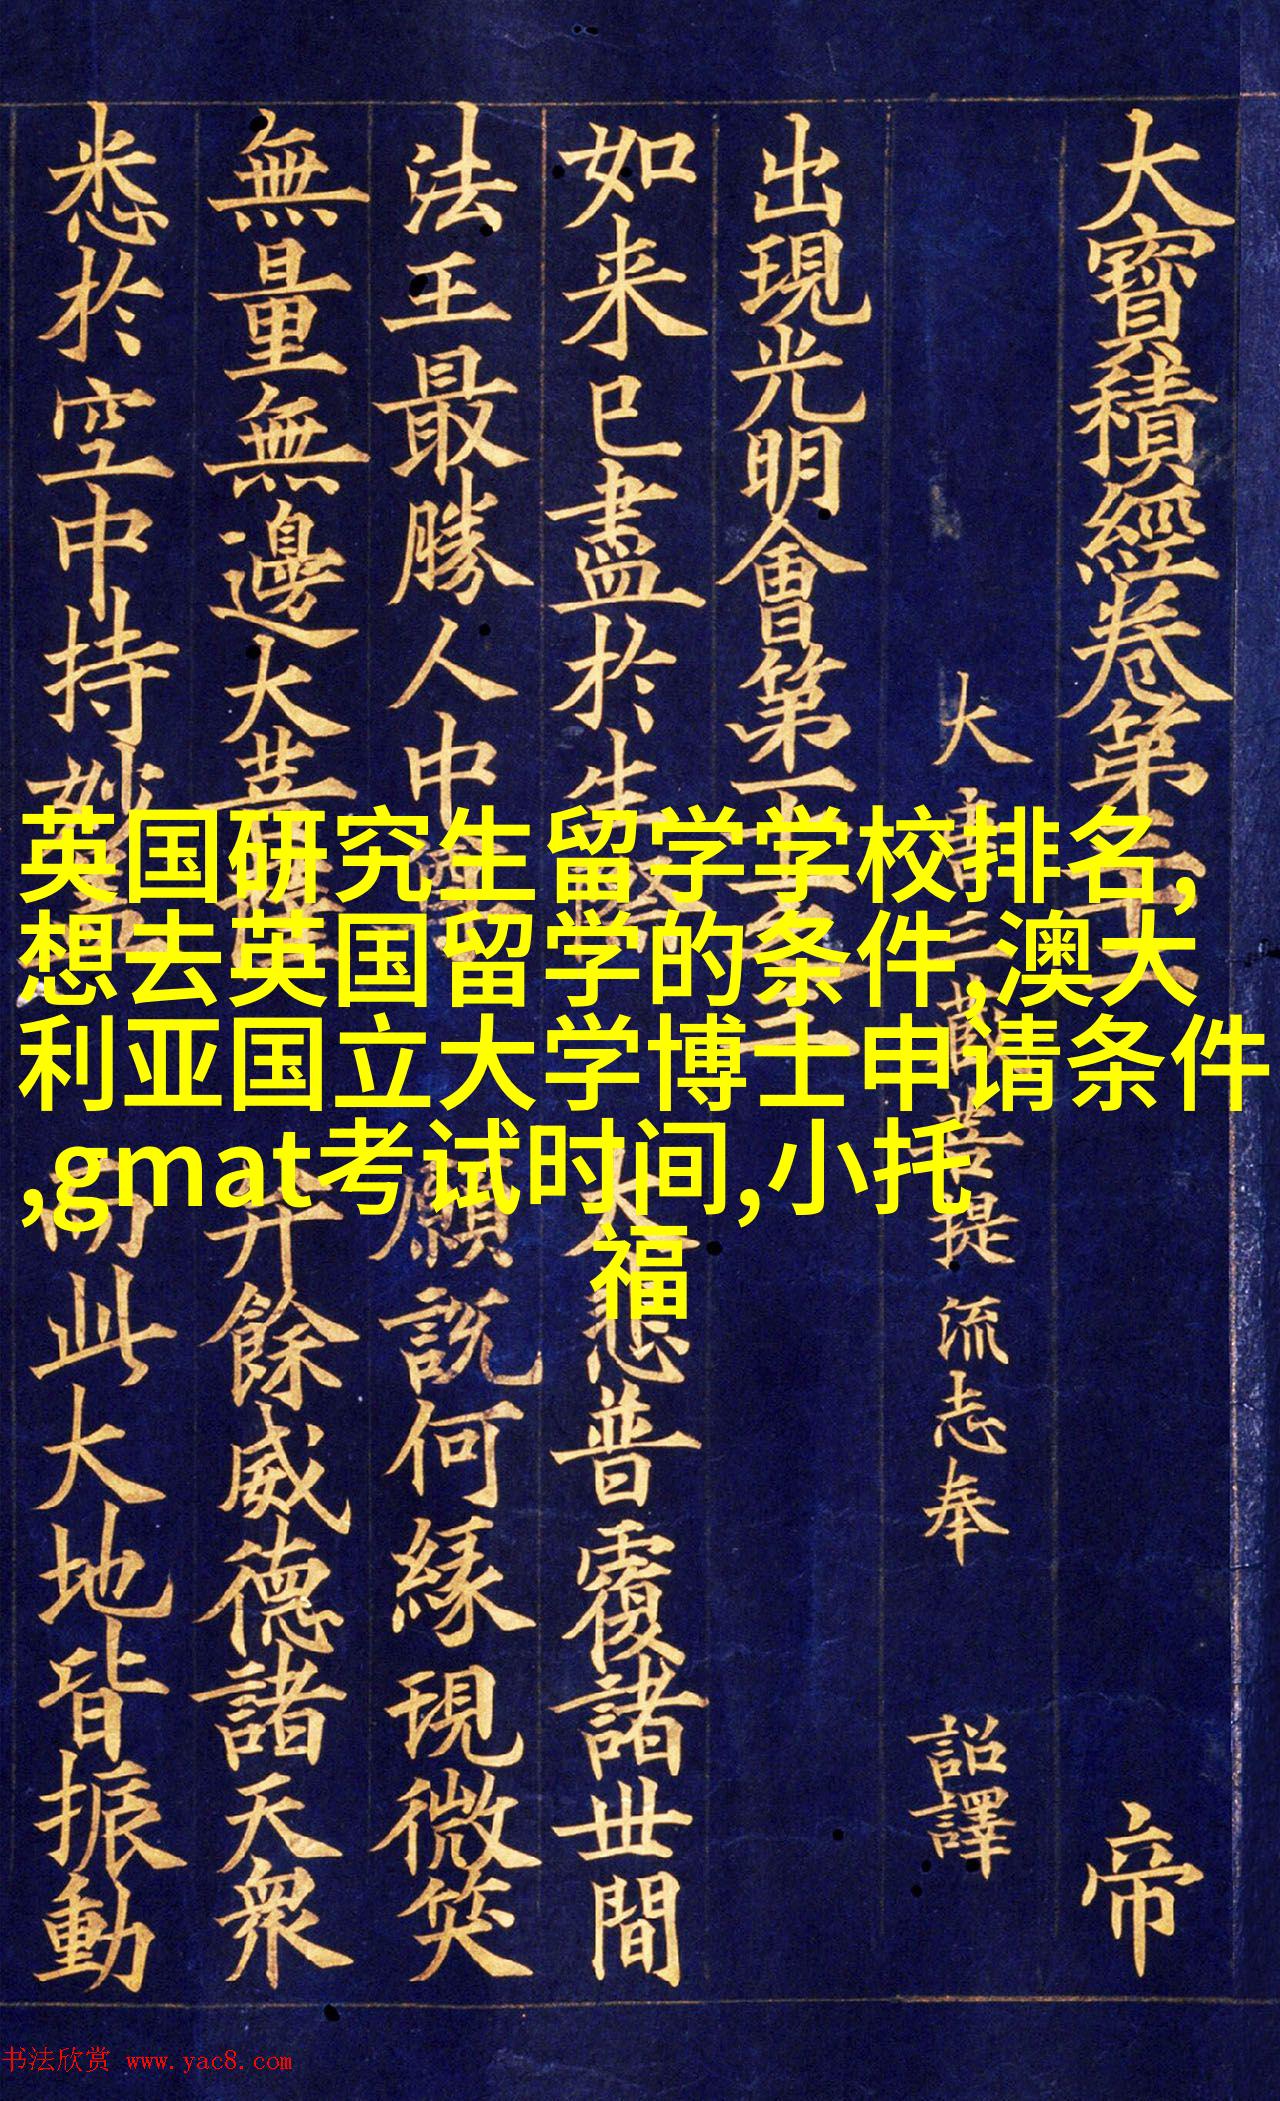 大寶積經卷第三十 帝
大唐三藏菩提流志奉 詔譯
出現光明會第十一之三
如来已盡於生 大悲普覆諸世間
法王最勝人中 願説何縁現微笑
無量無邊大菩薩 并餘威德諸天衆
悉於空中持妙 而此大地皆振動
英国研究生留学学校排名,
想去英国留学的条件,澳大
利亚国立大学博士申请条件
,gmat考试时间,小托
福
书法欣赏 www.yac8.com